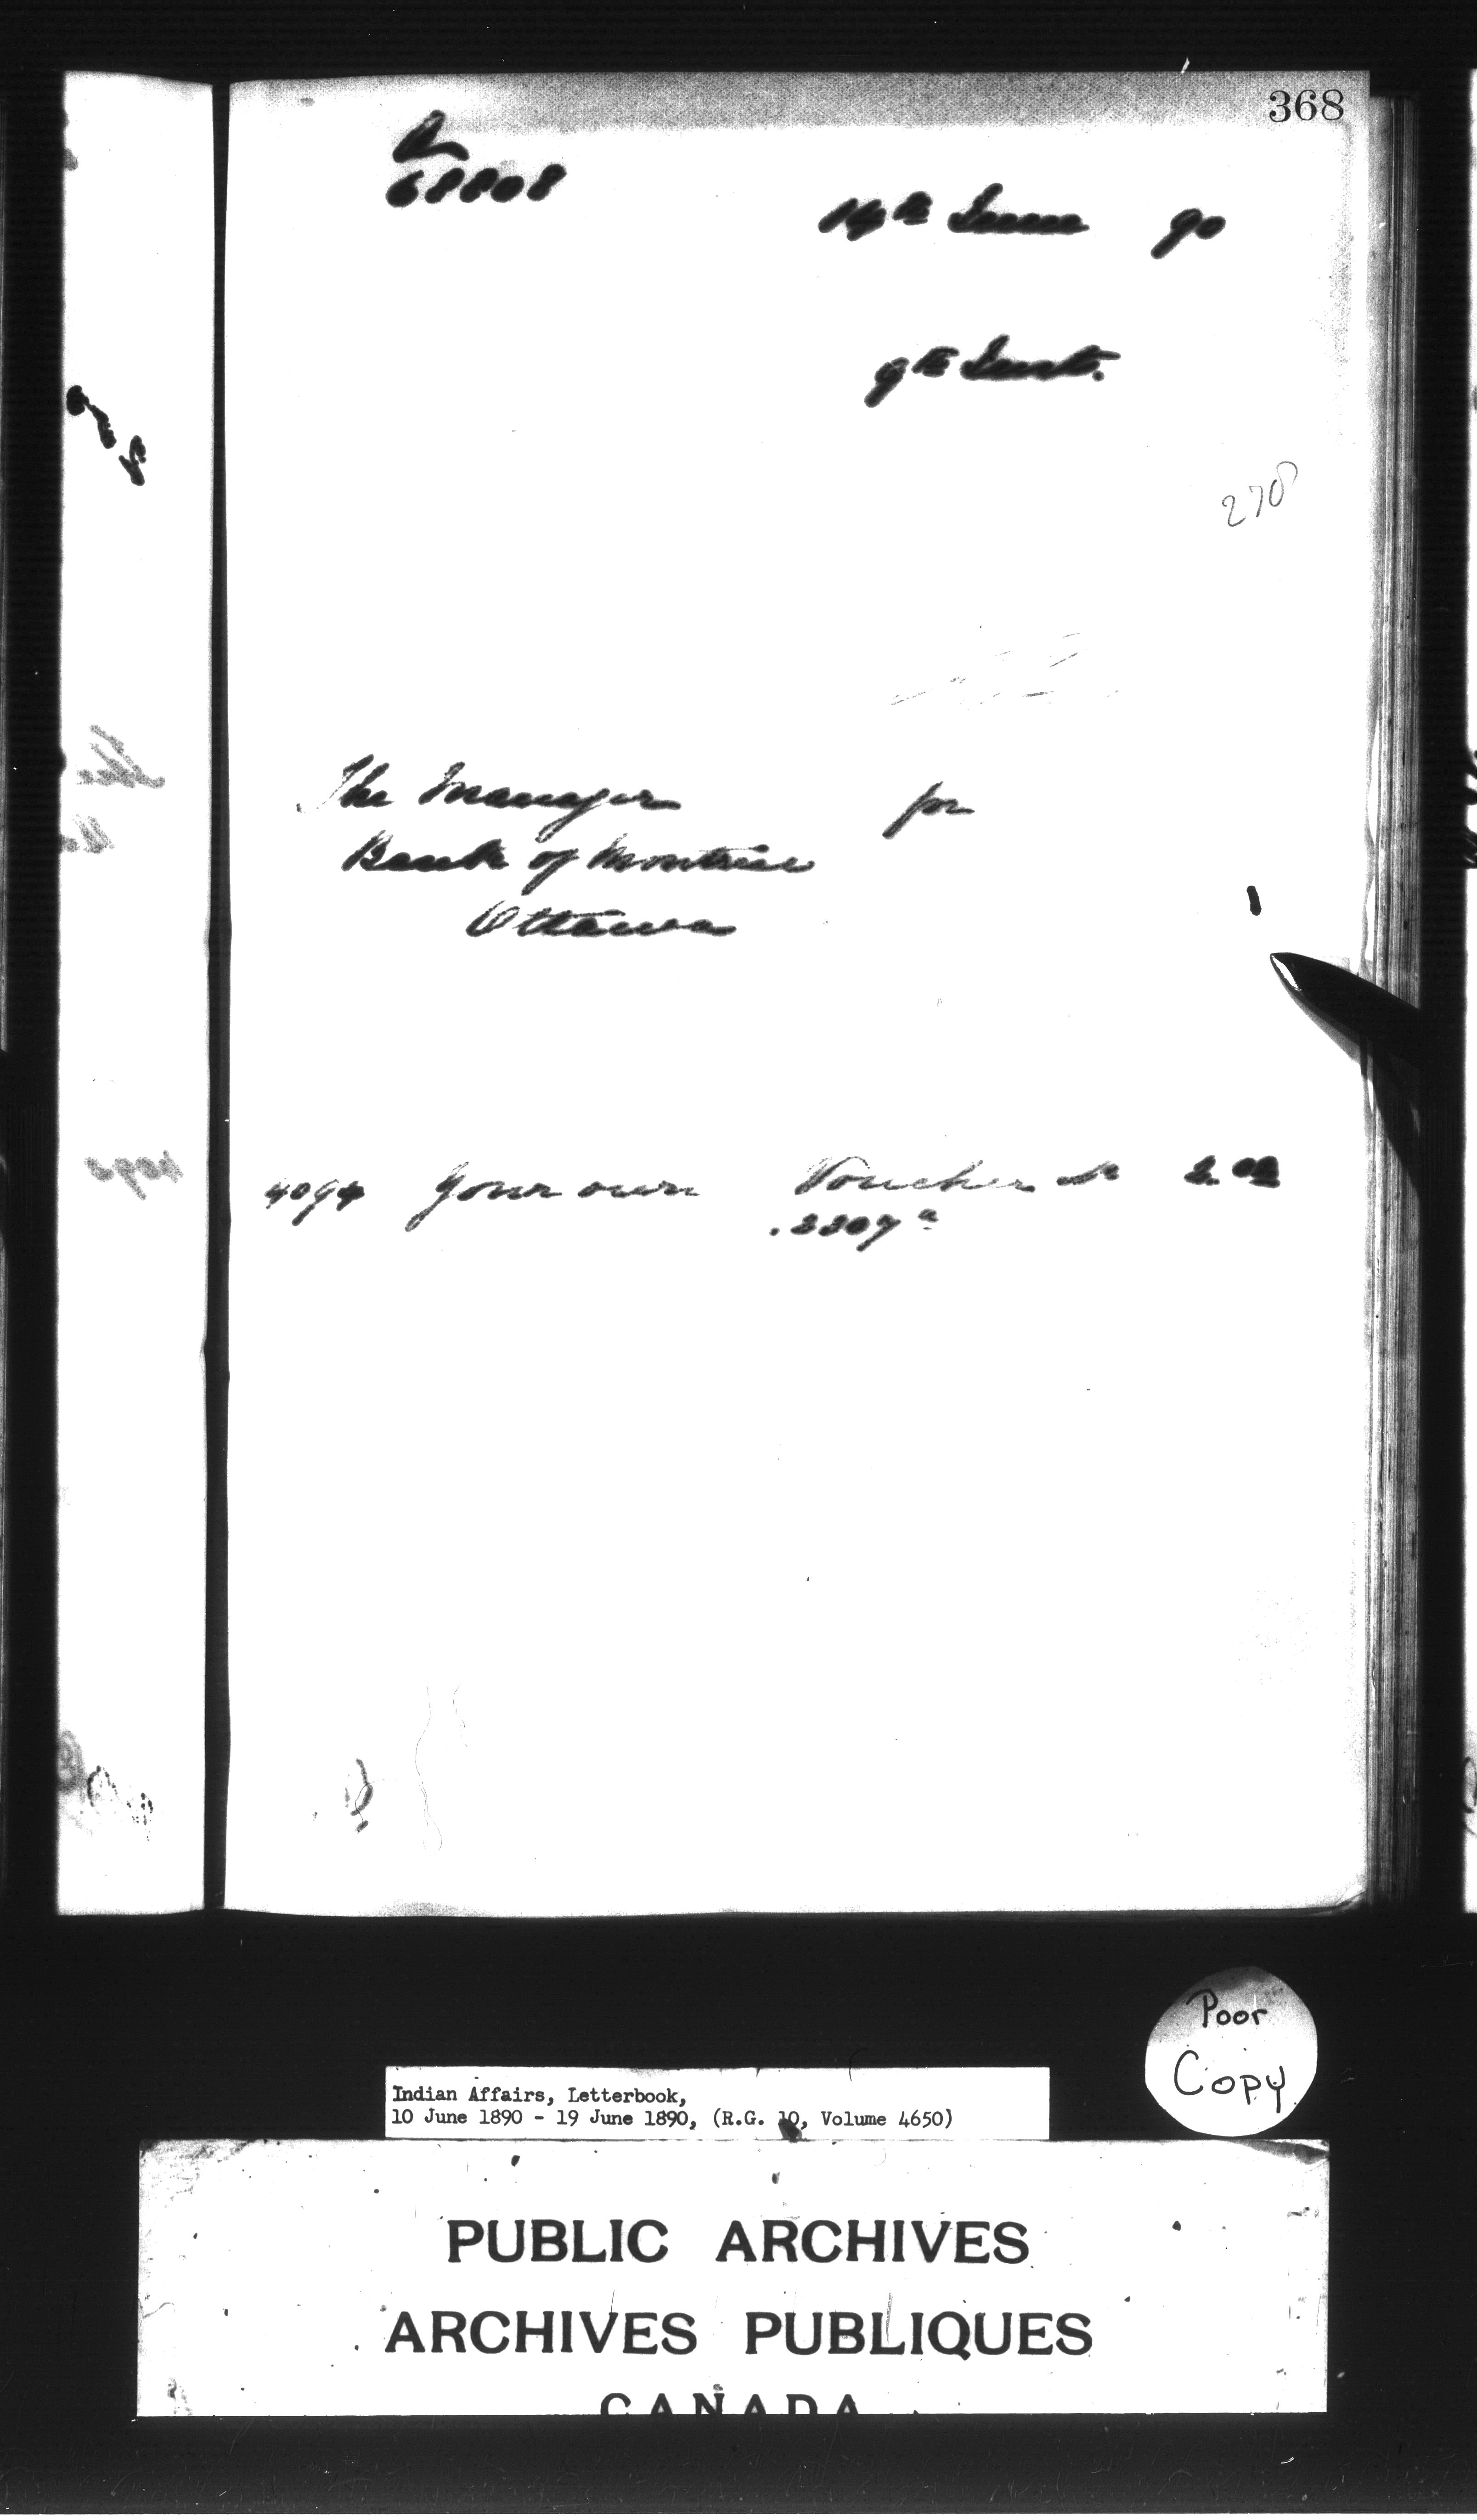 368
68808
14th June 90
9th Inst.
278
The Manager for
Bank of Montreal
Ottawa
4094 Your own Voucher 2.00
2207a
Poor
Copy
Indian Affairs, Letterbook,
10 June 1890 - 19 June 1890, (R.G. 10, Volume 4650)
PUBLIC ARCHIVES
ARCHIVES PUBLIQUES
CANADA